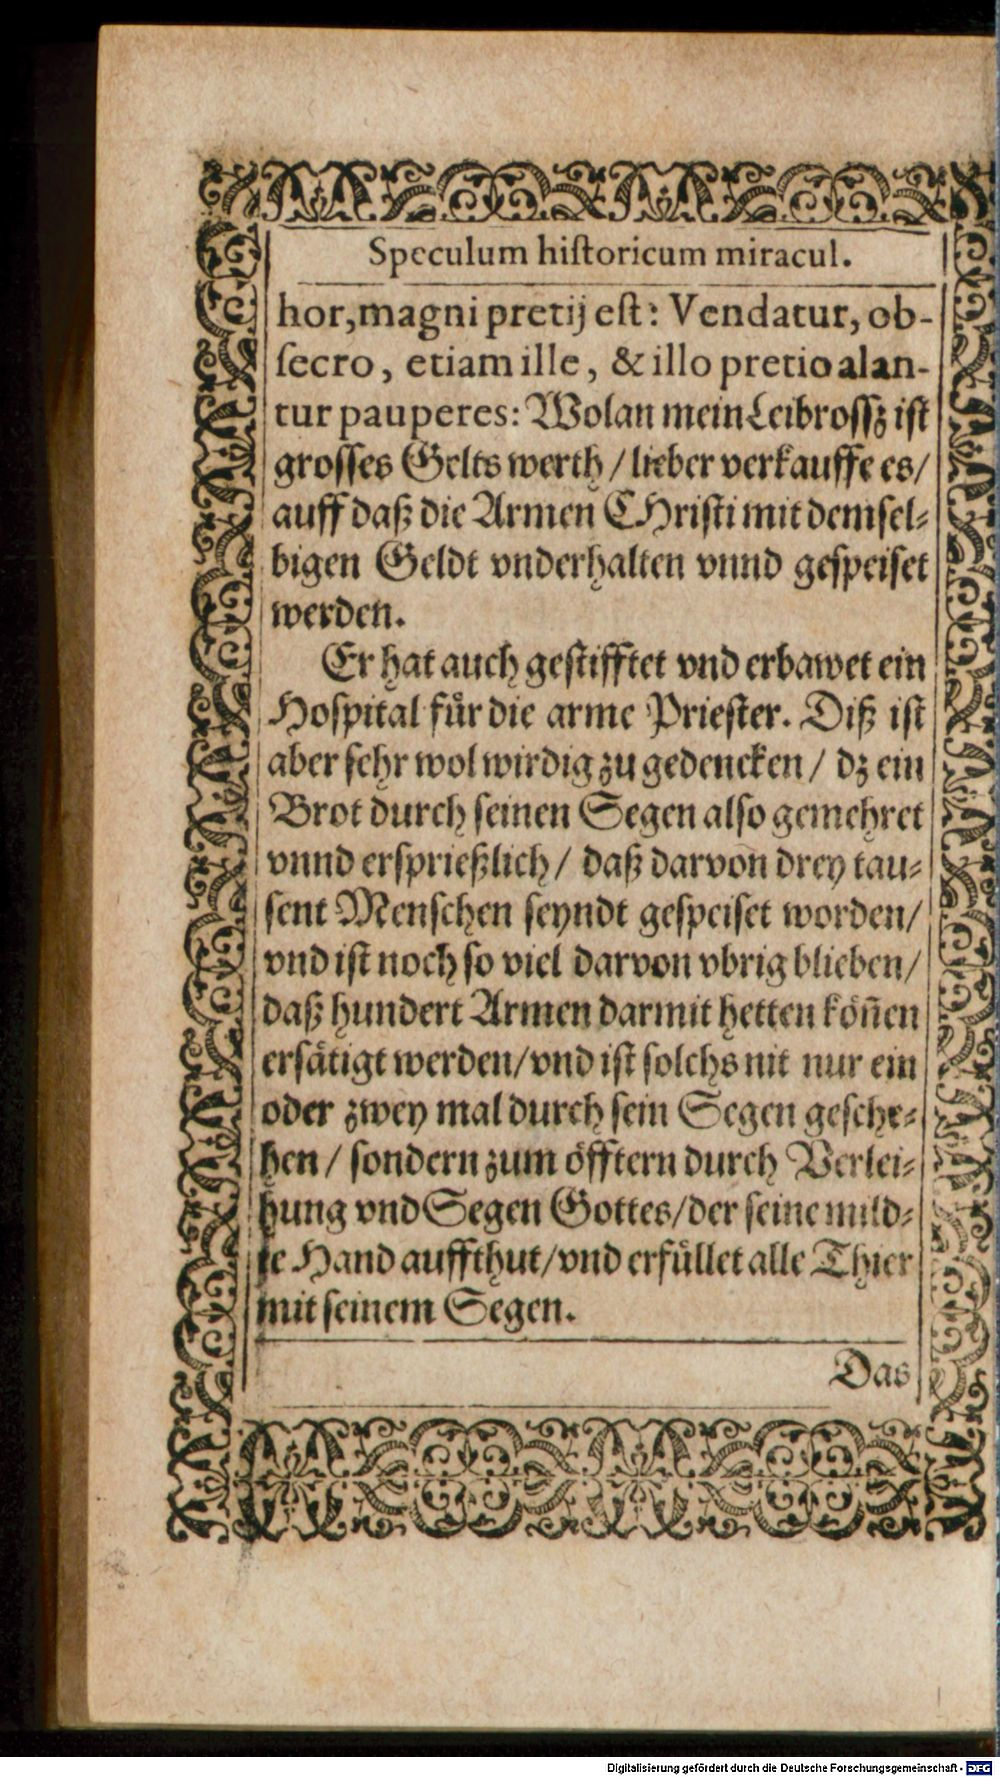 Speculum historicum miracul.
hor, magni pretij est: Vendatur, ob-
secro, etiam ille, & illo pretio alan-
tur pauperes: Wolan mein Leibrossz ist
grosses Gelts werth / lieber verkauffe es /
auff daß die Armen CHristi mit demsel-
bigen Geldt vnderhalten vnnd gespeiset
werden.
Er hat auch gestifftet vnd erbawet ein
Hospital fuͤr die arme Priester. Diß ist
aber sehr wol wirdig zu gedencken / dz ein
Brot durch seinen Segen also gemehret
vnnd ersprießlich / daß darvon drey tau-
sent Menschen seyndt gespeiset worden /
vnd ist noch so viel darvon vbrig blieben /
daß hundert Armen darmit hetten koͤñen
ersaͤtigt werden / vnd ist solchs nit nur ein
oder zwey mal durch sein Segen gesche-
hen / sondern zum oͤfftern durch Verlei-
hung vnd Segen Gottes / der seine mild-
te Hand auffthut / vnd erfuͤllet alle Thier
mit seinem Segen.
Das
Digitalisierung gefördert durch die Deutsche Forschungsgemeinschaft - DFG